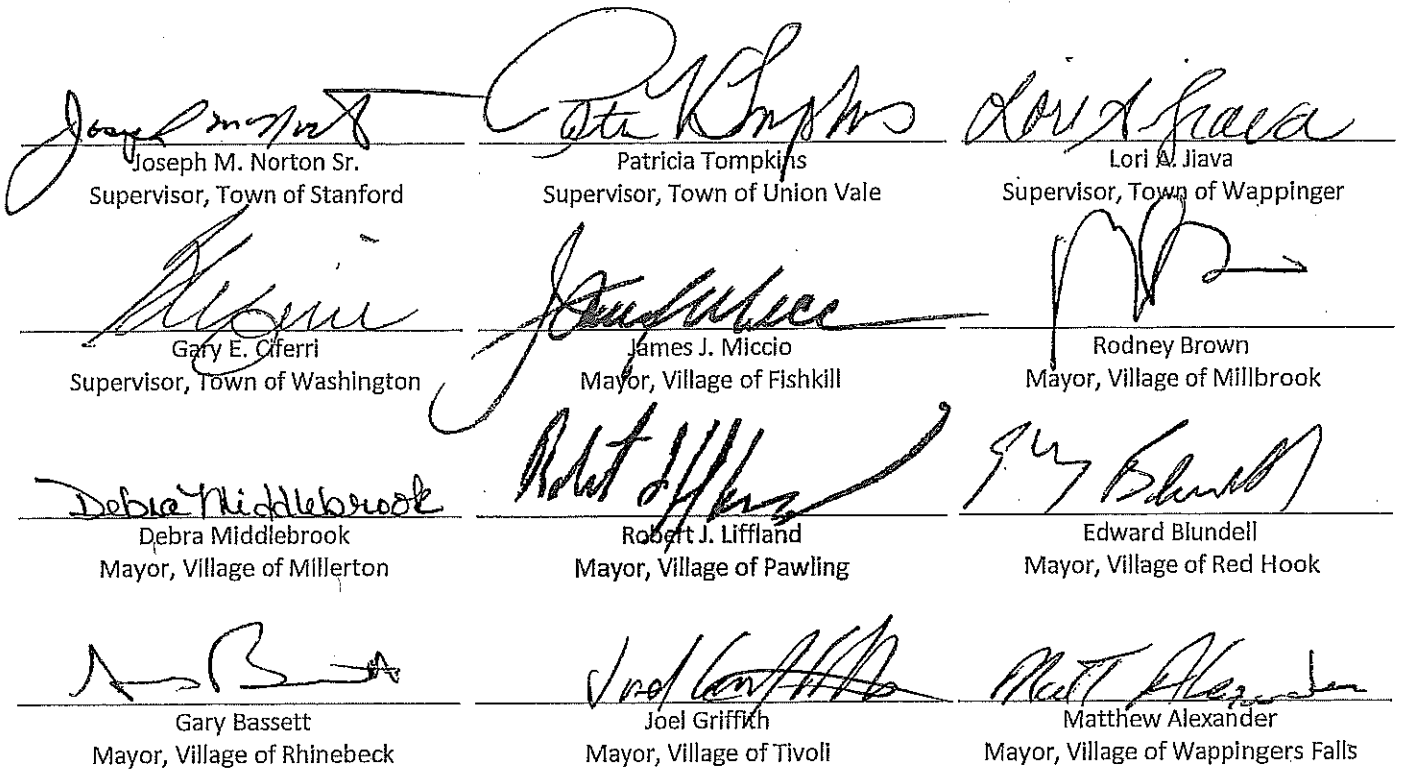 Joseph M. Norton Sr.
Supervisor, Town of Stanford
Patricia Tompkins
Supervisor, Town of Union Vale
Lori A Jiava
Lori A. Jiava
Supervisor, Town of Wappinger
Gary E. Ciferri
Supervisor, Town of Washington
James J. Miccio
Mayor, Village of Fishkill
Rodney Brown
Mayor, Village of Millbrook
Debra Middlebrook
Debra Middlebrook
Mayor, Village of Millerton
Robert J. Liffland
Mayor, Village of Pawling
Edward Blundell
Mayor, Village of Red Hook
Gary Bassett
Mayor, Village of Rhinebeck
Joel Griffith
Mayor, Village of Tivoli
Matt Alexander
Matthew Alexander
Mayor, Village of Wappingers Falls